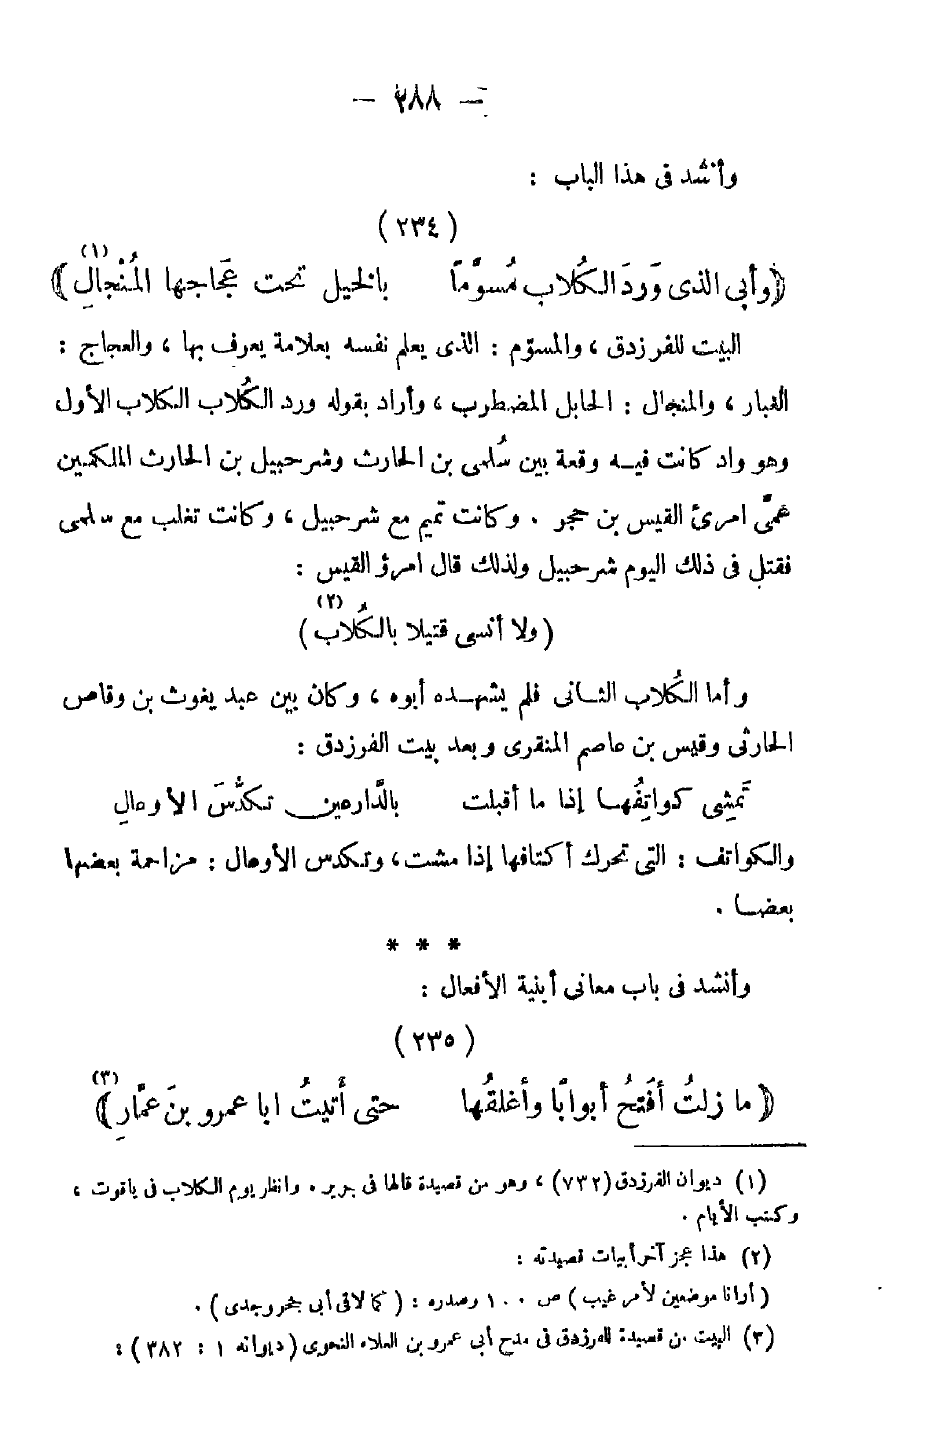 — ٢٨٨ —
وأنشد فى هذا الباب :
( ٢٣٤ )
﴿وأبى الذى وَردَ الكُلاب مُسوَّماً بالخيل تحت عَجاجها المُنْجالِ﴾ (١)
البيت للفرزدق ، والمسوّم : الذى يعلم نفسه بعلامة يعرف بها ، والعجاج :
الغبار ، والمنجال : الحابل المضطرب ، وأراد بقوله ورد الكُلاب الكلاب الأول
وهو واد كانت فيه وقعة بين سُلمى بن الحارث وشرحبيل بن الحارث الملكين
عمَّى امرئ القيس بن حجر . وكانت تميم مع شرحبيل ، وكانت تغلب مع سلمى
فقتل فى ذلك اليوم شرحبيل ولذلك قال امرؤ القيس :
( ولا أنسى قتيلا بالكُلاب ) (٢)
وأما الكُلاب الثانى فلم يشهده أبوه ، وكان بين عبد يغوث بن وقاص
الحارثى وقيس بن عاصم المنقرى وبعد بيت الفرزدق :
تَمشِى كواتِفُها إذا ما أقبلت بالدَّارعين تكدُّسَ الأوعالِ
والكواتف : التى تحرك أكتافها إذا مشت، وتكدس الأوعال : مزاحمة بعضها
بعضا .
* * *
وأنشد فى باب معانى أبنية الأفعال :
( ٢٣٥ )
﴿ ما زلتُ أفتحُ أبوابًا وأغلقُها حتى أتيتُ ابا عمرو بنَ عمَّارِ ﴾ (٣)
(١) ديوان الفرزدق (٧٣٢) ، وهو من قصيدة قالها فى جرير . وانظر يوم الكلاب فى ياقوت ،
وكتب الأيام .
(٢) هذا عجز آخر أبيات قصيدته :
( أرانا موضعين لأمر غيب ) ص ١٠٠ وصدره : ( كما لاقى أبى حجر وجدى ) .
(٣) البيت من قصيدة للفرزدق فى مدح أبى عمرو بن العلاء النحوى ( ديوانه ١ : ٣٨٢ ) :